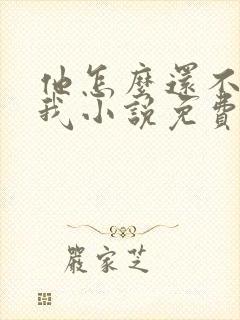 他怎麼還不
我小說免費
嚴家芝